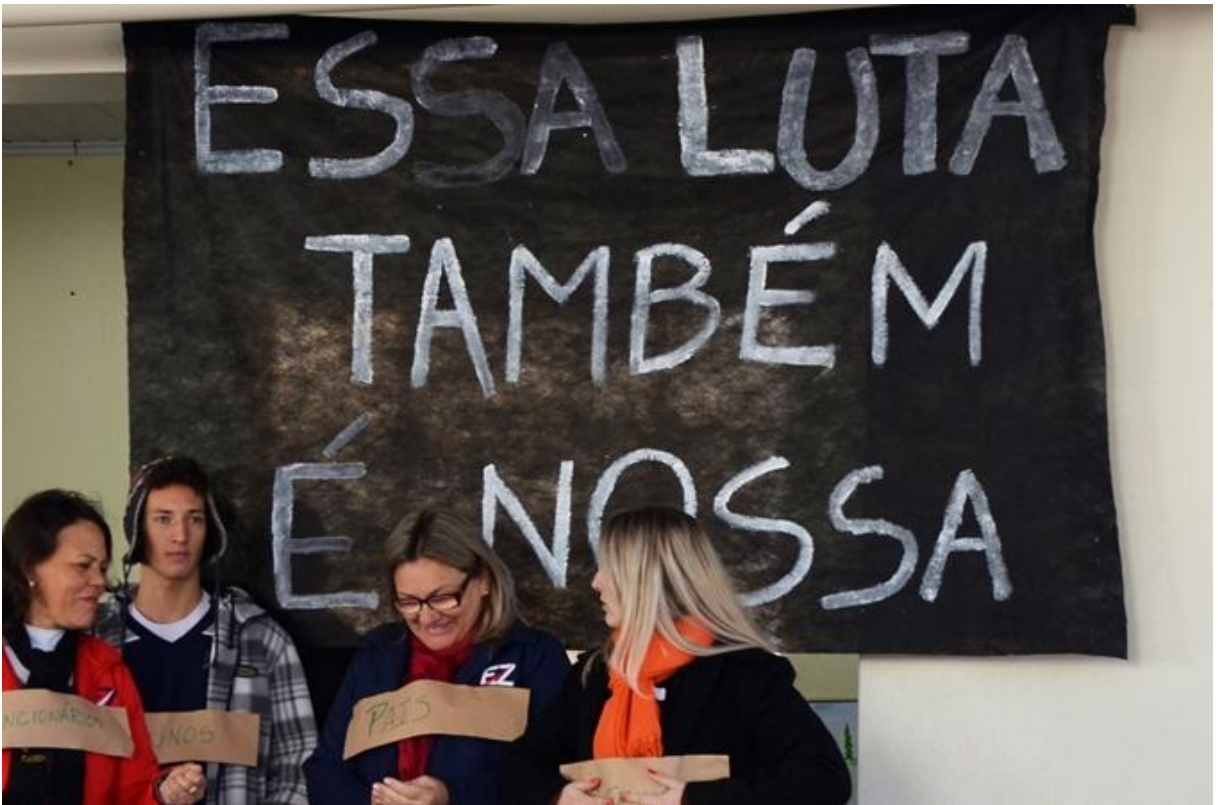 ESSA LUTA
TAMBÉM
É NOSSA
NCIONÁRIOS
UNOS
PAIS
EZ